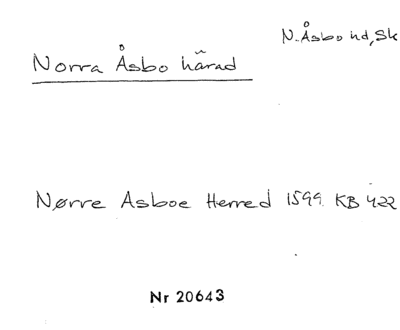 N. Åsbo hd, Sk
Norra Åsbo härad
Nørre Asboe Herred 1599. KB 422
Nr 20643